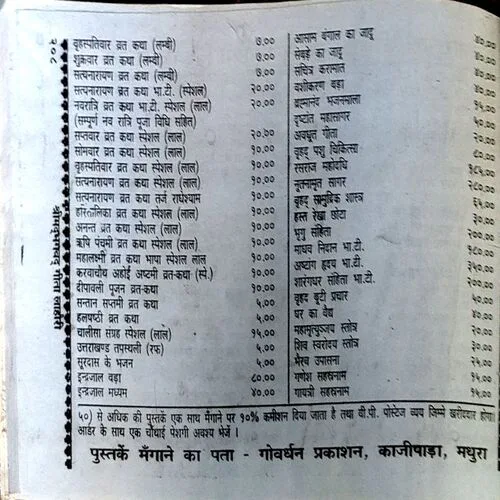 २०८
श्रीमद्भगवद् गीता
बृहस्पतिवार व्रत कथा (लम्बी) ७.००
शुक्रवार व्रत कथा (लम्बी) ७.००
सत्यनारायण व्रत कथा (लम्बी) ७.००
सत्यनारायण व्रत कथा भा.टी. (स्पेशल) २०.००
नवरात्रि व्रत कथा भा.टी. स्पेशल (लाल) २०.००
(सम्पूर्ण नव रात्रि पूजा विधि सहित)
सप्तवार व्रत कथा स्पेशल (लाल) २०.००
सोमवार व्रत कथा स्पेशल (लाल) १०.००
बृहस्पतिवार व्रत कथा स्पेशल (लाल) १०.००
सत्यनारायण व्रत कथा स्पेशल (लाल) १०.००
सत्यनारायण व्रत कथा तर्ज राधेश्याम १०.००
हरितालिका व्रत कथा स्पेशल (लाल) १०.००
अनन्त व्रत कथा स्पेशल (लाल) १०.००
ऋषि पंचमी व्रत कथा स्पेशल (लाल) १०.००
महालक्ष्मी व्रत कथा भाषा स्पेशल लाल १०.००
करवाचौथ अहोई अष्टमी व्रत-कथा (स्पे.) १०.००
दीपावली पूजन व्रत-कथा १०.००
सन्तान सप्तमी व्रत कथा ५.००
हलषष्ठी व्रत कथा ५.००
चालीसा संग्रह स्पेशल (लाल) १५.००
उत्तराखण्ड तपस्थली (रफ) ५.००
सूरदास के भजन ५.००
इन्द्रजाल बड़ा ८०.००
इन्द्रजाल मध्यम ४०.००
आसाम बंगाल का जादू ४०.००
सेवड़े का जादू ४०.००
सचित्र करामात ४०.००
वशीकरण बड़ा ४०.००
ब्रह्मानंद भजनमाला १५.००
दृष्टांत महासागर ५०.००
अवधूत गीता २०.००
वृहद् पशु चिकित्सा ८०.००
रसराज महोदधि १८५.००
नूतनामृत सागर २८०.००
वृहद् सामुद्रिक शास्त्र ६५.००
हस्त रेखा छोटा ३०.००
भृगु संहिता २००.००
माधव निदान भा.टी. १८०.००
अष्टांग हृदय भा.टी. २५०.००
शारंगधर संहिता भा.टी. २००.००
वृहद बूटी प्रचार ५०.००
घर का वैद्य ४०.००
महामृत्युञ्जय स्तोत्र २०.००
शिव स्वरोदय स्तोत्र ३०.००
भैरव उपासना २५.००
गणेश सहस्रनाम १५.००
गायत्री सहस्रनाम १५.००
५०) से अधिक की पुस्तकें एक साथ मँगाने पर १०% कमीशन दिया जाता है तथा वी.पी. पोस्टेज व्यय जिम्मे खरीददार होगा।
आर्डर के साथ एक चौथाई पेशगी अवश्य भेजें ।
पुस्तकें मँगाने का पता - गोवर्धन प्रकाशन, काजीपाड़ा, मथुरा